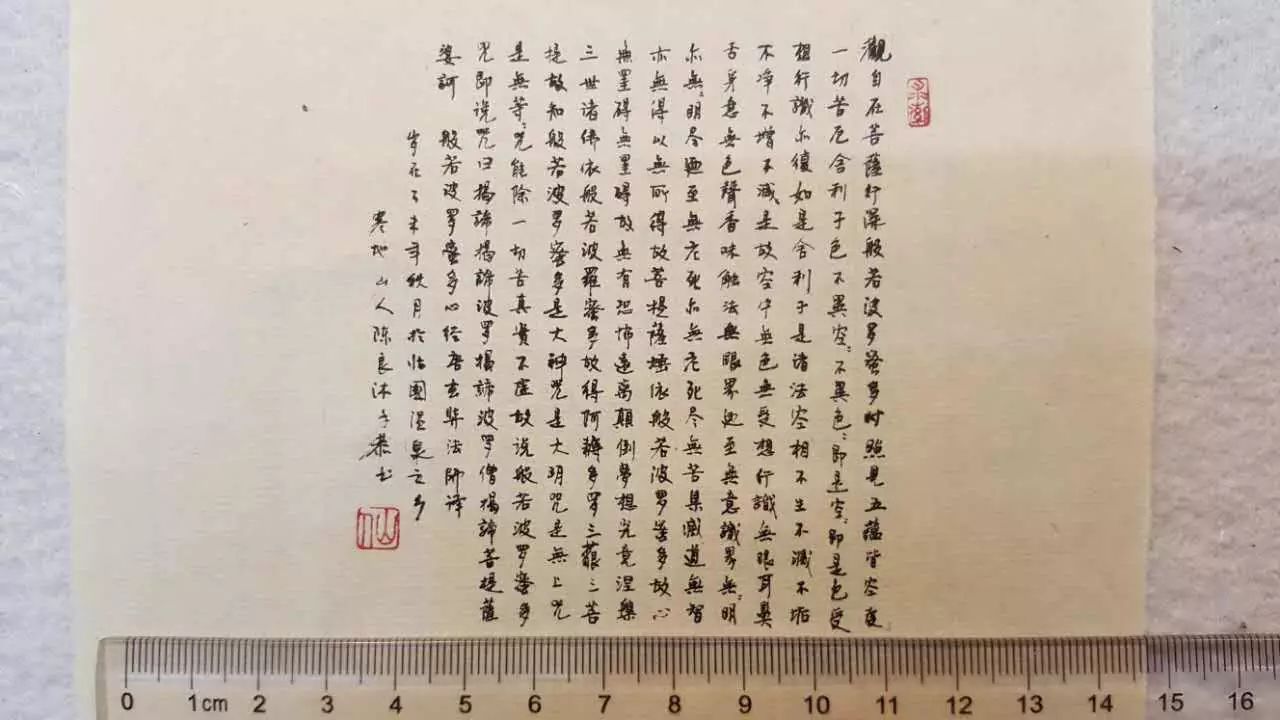 觀自在菩薩行深般若波罗蜜多时照見五蘊皆空度
一切苦厄舍利子色不異空〻不異色〻即是空〻即是色受
想行識亦復如是舍利子是諸法空相不生不滅不垢
不净不增不减是故空中無色無受想行識無眼耳鼻
舌身意無色聲香味触法無眼界乃至無意識界無〻明
亦無〻明尽乃至無老死亦無老死尽無苦集滅道無智
亦無得以無所得故菩提薩埵依般若波罗蜜多故心
無罣碍無罣碍故無有恐怖遠离顛倒夢想究竟涅槃
三世诸佛依般若波羅蜜多故得阿耨多罗三藐三菩
提故知般若波罗蜜多是大神咒是大明咒是無上咒
是無等〻咒能除一切苦真實不虛故说般若波罗蜜多
咒即说咒曰揭諦揭諦波罗揭諦波罗僧揭諦菩提薩
婆訶 般若波罗蜜多心经唐玄奘法师译
岁在丁未年秋月於怡園温泉之乡
寒地山人陈良沐手恭书
0 1cm 2 3 4 5 6 7 8 9 10 11 12 13 14 15 16